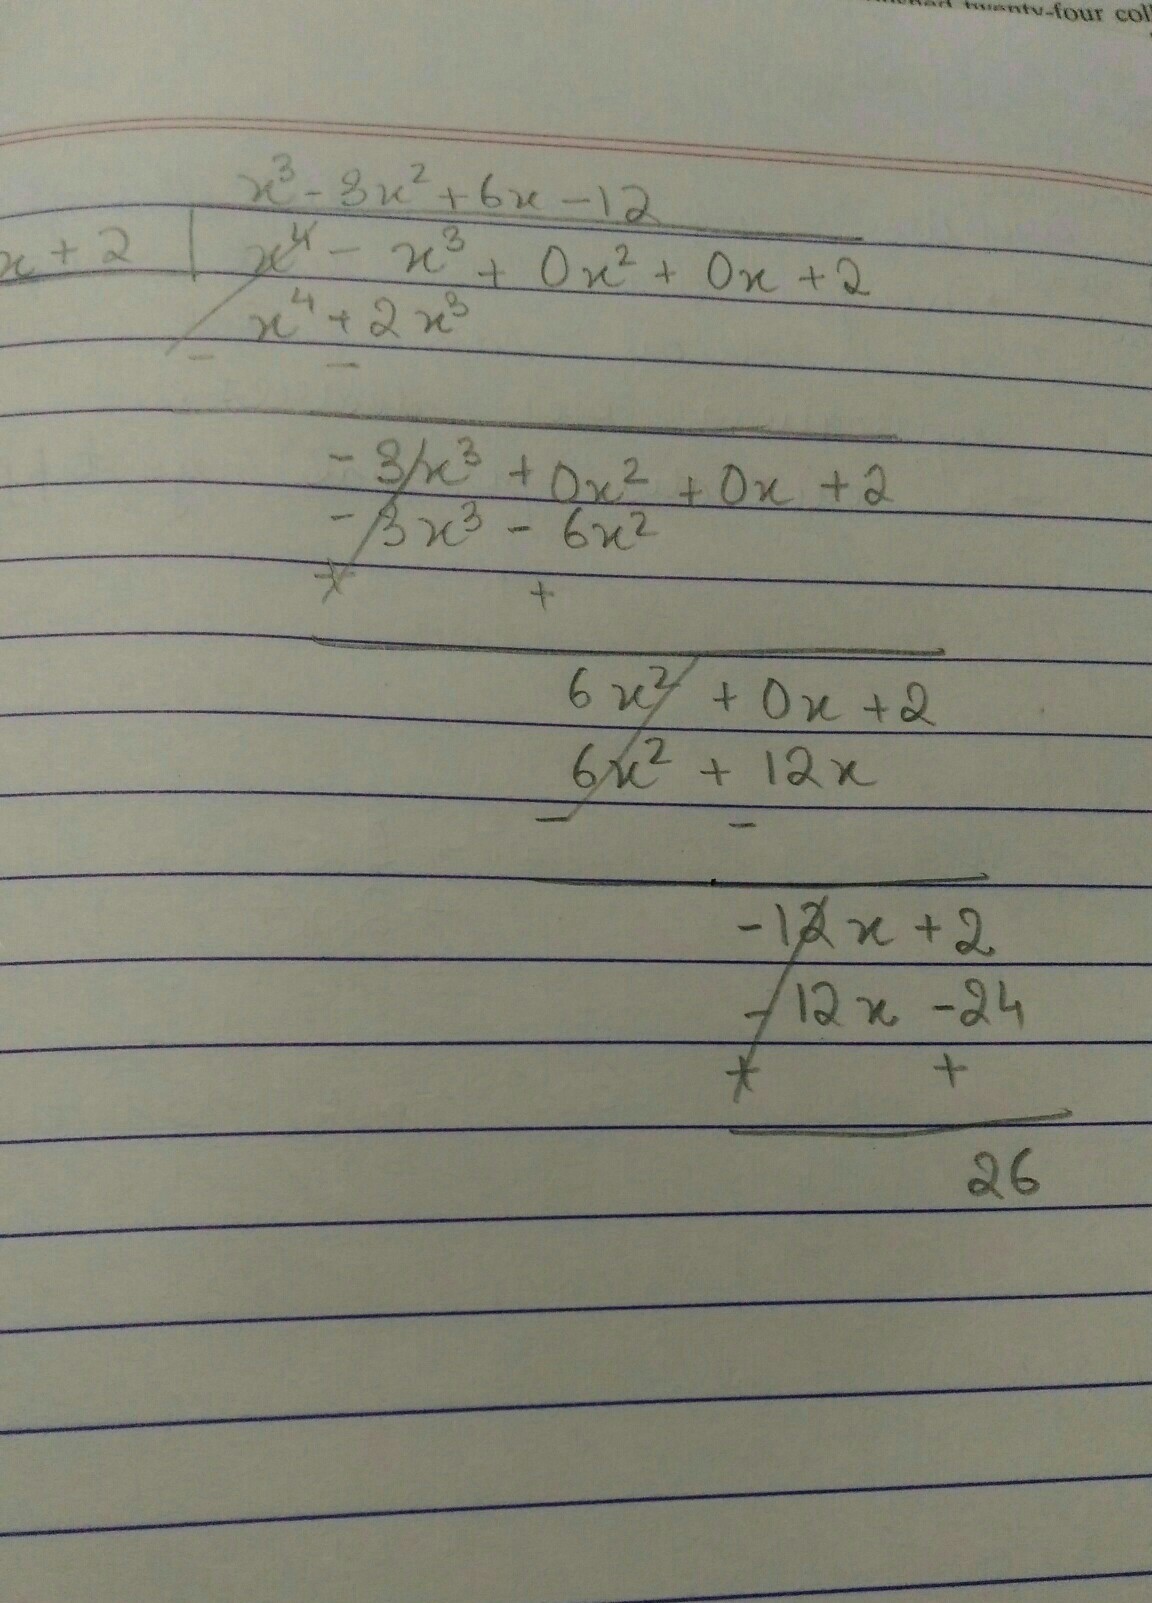 twenty-four
x³ - 3x² + 6x - 12
x + 2 | x⁴ - x³ + 0x² + 0x + 2
x⁴ + 2x³
- -
- 3x³ + 0x² + 0x + 2
- 3x³ - 6x²
+ +
6x² + 0x + 2
6x² + 12x
- -
-12x + 2
-12x - 24
+ +
26